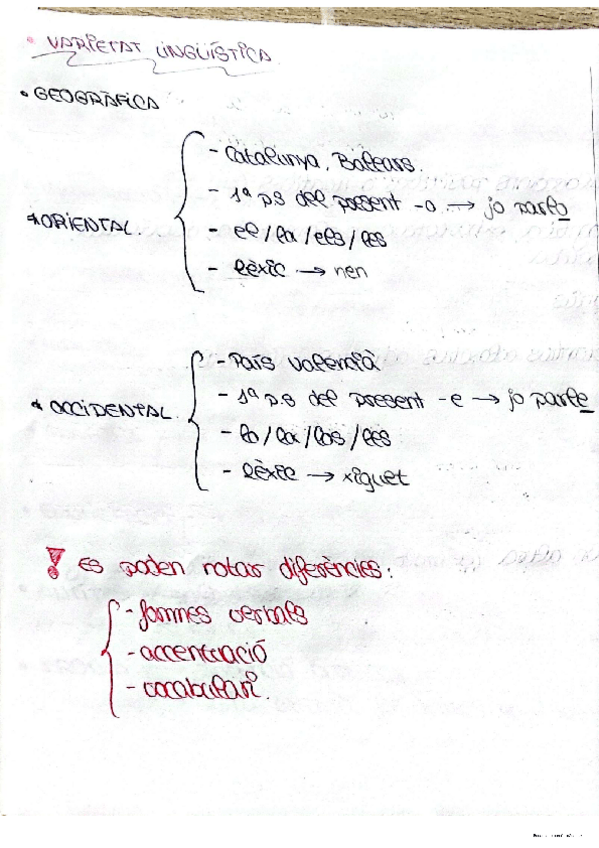 • VARIETAT LINGÜÍSTICA
• GEOGRÀFICA
* ORIENTAL
- Catalunya, Balears.
- 1ª ps del present -o → jo parlo
- el / la / els / les
- lèxic → nen
* OCCIDENTAL
- País Valencià
- 1ª ps del present -e → jo parle
- lo / la / los / les
- lèxic → xiguet
! Es poden notar diferències:
- formes verbals
- accentuació
- vocabulari.